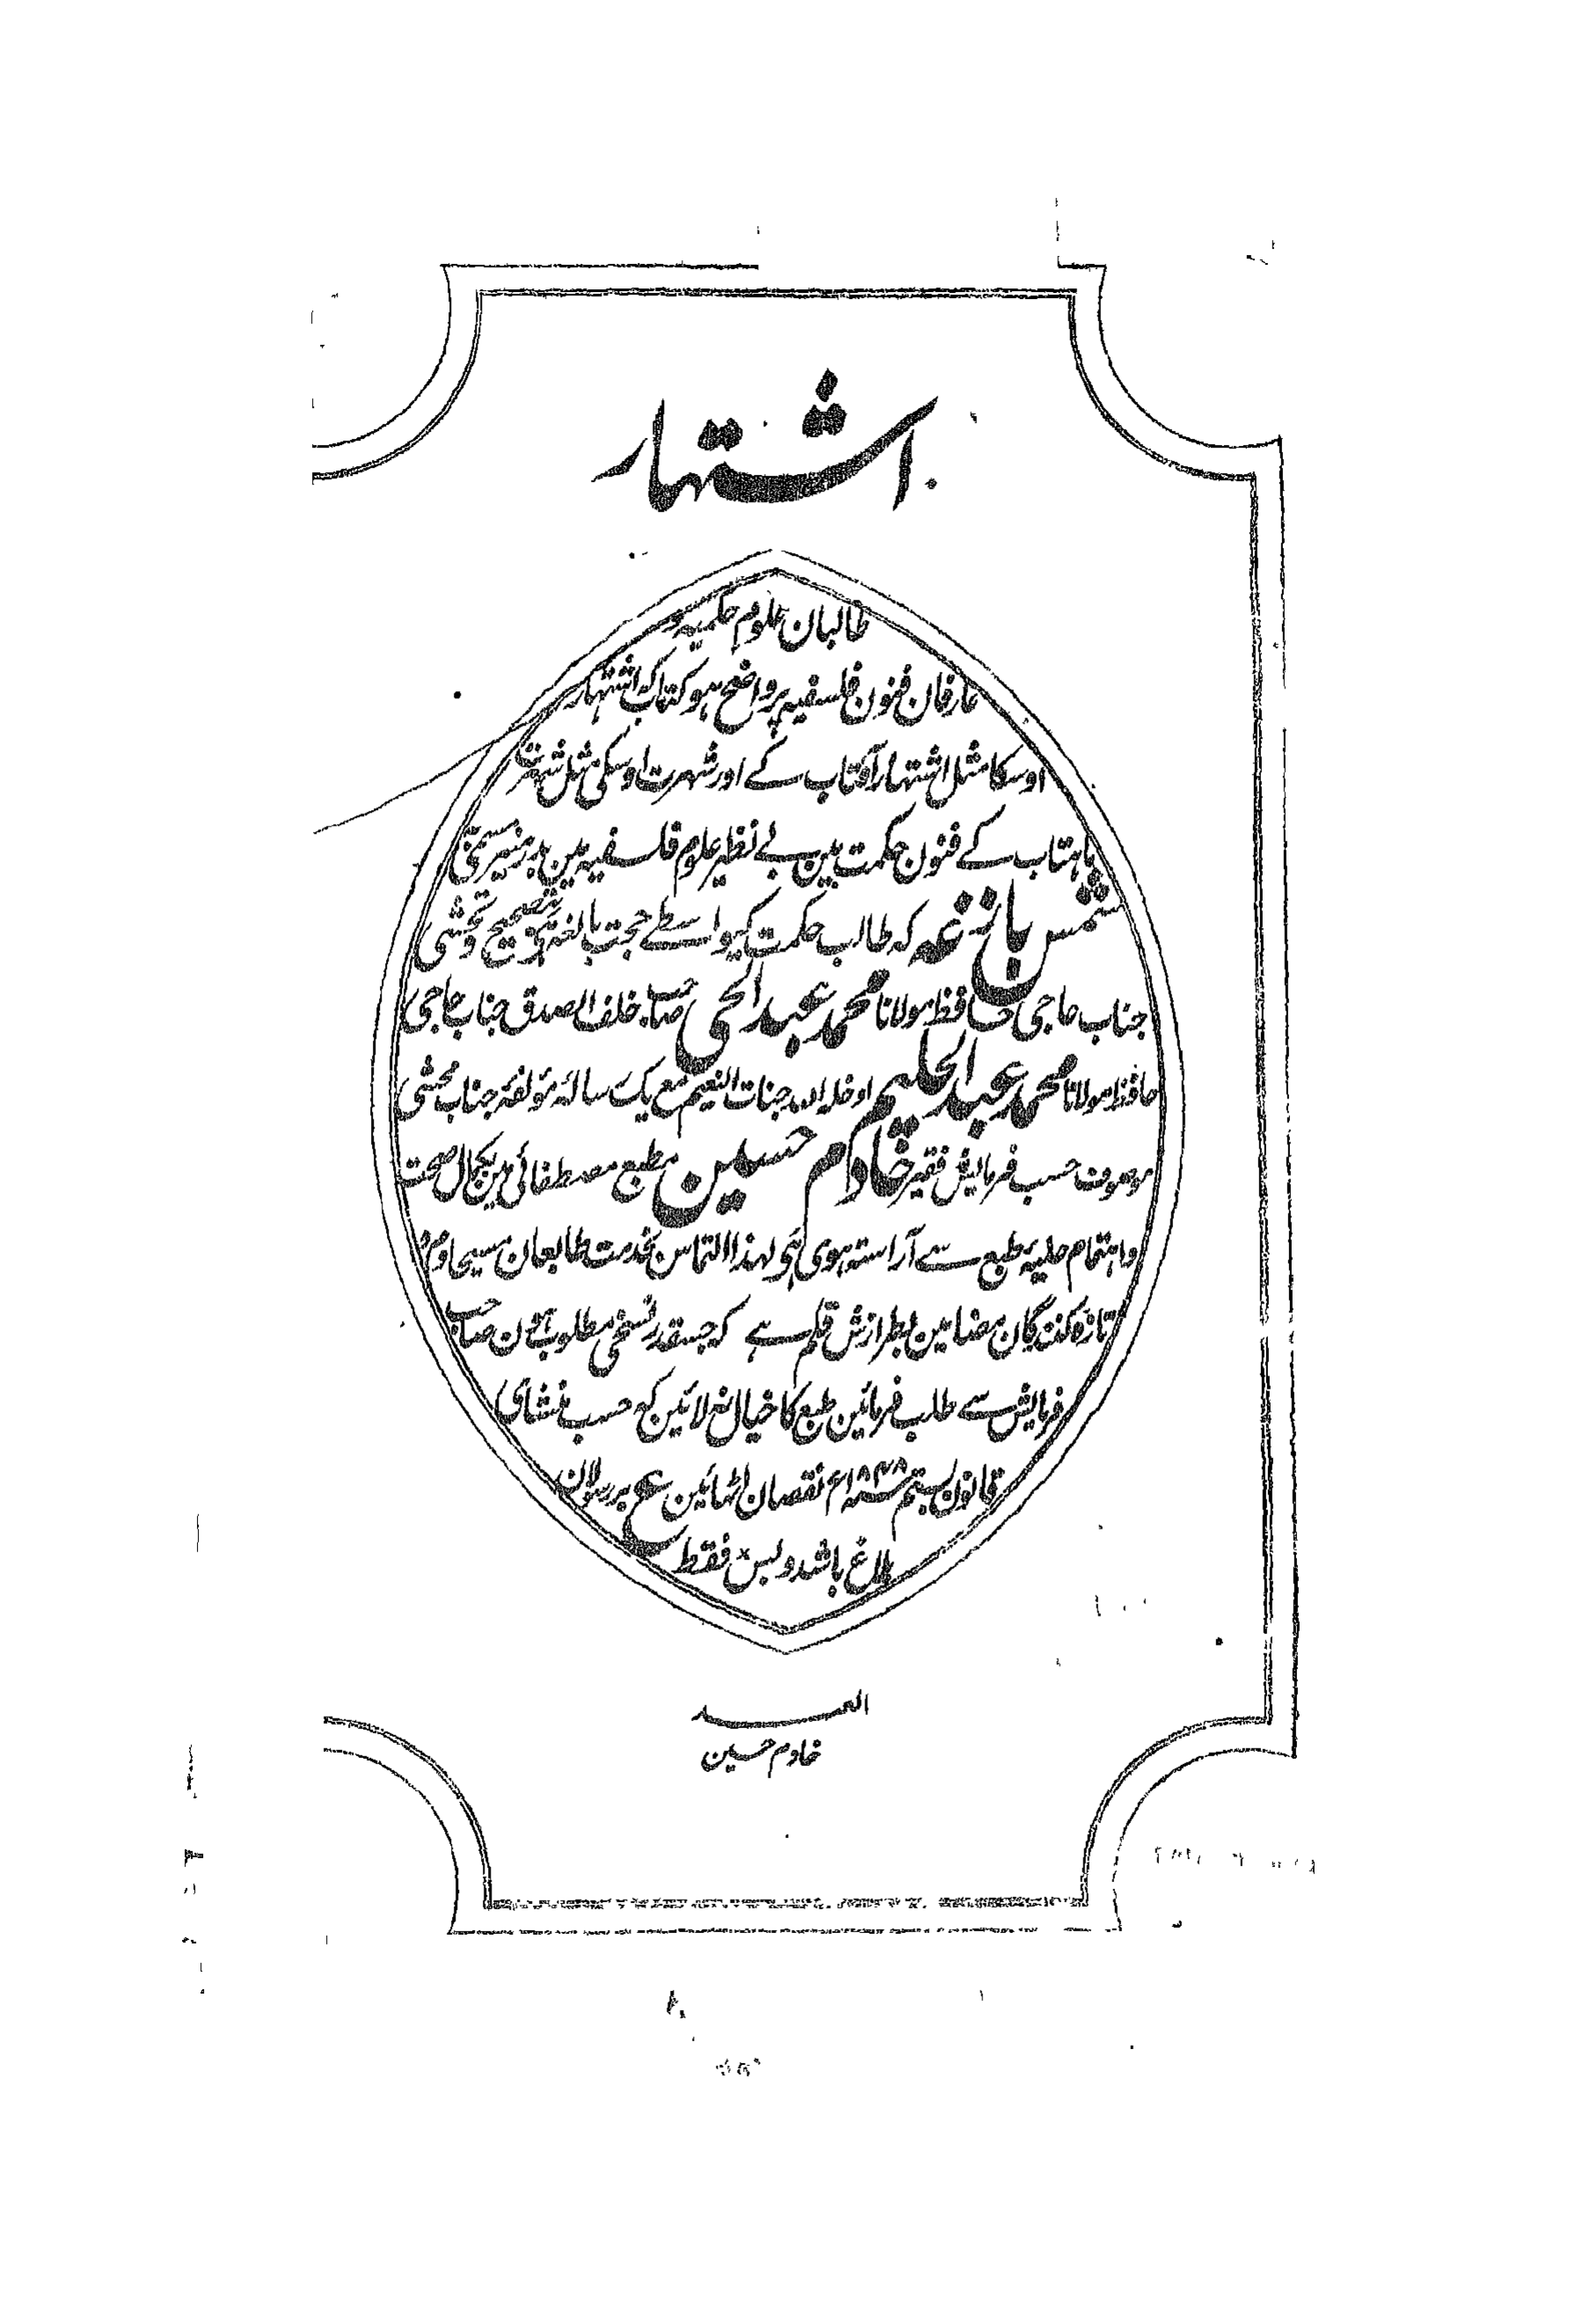 اشتہار
طالبان علوم حکمیہ و
عارفان فنون فلسفیہ پر واضح ہو کتاب کہ اشتہار
اوسکا مثل اشتہار آفتاب کے اور شہرت اوسکی مثل شہرت
ماہتاب کے فنون حکمت مین بے نظیر علوم فلسفیہ مین بدر منیر مسمیٰ
شمس بازغہ کہ طالب حکمت کیواسطے حجت بالغہ ہی بتصحیح و تحشی
جناب حاجی حافظ مولانا محمد عبد الحی صاحب خلف الصدق جناب حاجی
حافظ مولانا محمد عبد الحلیم ادخلہ اللہ جنات النعیم مع یک رسالۂ مؤلفہ جناب محشی
موصوف حسب فرمایش فقیر خادم حسین مطبع مصطفائی مین بکمال صحت
و اہتمام حلیہ طبع سے آراستہ ہوی ہی لہذا التماس بخدمت طابعان مسیحا دم و
تازہ کنندگان مضامین بطرازش قلم ہے کہ جسقدر نسخی مطلوب ہون صاحب
فرمایش سے طلب فرمائین طبع کا خیال نہ لائین کہ حسب منشای
قانون بستم ۱۸۴۷؁ء نقصان اٹھائین ع بر رسولان
بلاغ باشد و بس فقط
العبد
خادم حسین